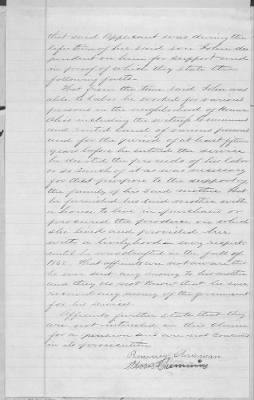 that said Applicant was during the
lifetime of her said son John de-
pendent on him for support and
in proof of which they state the
following facts.
That from the time said John was
able to labor he worked for various
persons in the neighborhood of
Ohio including the
and rented land of
and for the period of at least
years before he entered the service
he devoted the proceeds of his labor
or so much of it as was necessary
for that purpose to the support of
the family of his said mother that
he furnished his said mother with
a house to live in purchased or
procured the produce on which
she lived and provided her
with a livelihood in every respect
until he was drafted in the fall of
186 . That affiants are not aware that
he ever sent any money to his mother
and they do not know that he ever
received any money of the government
for his services.
Affiants further state that they
are not interested in this claim
for a pension and are not concerned
in its prosecution.